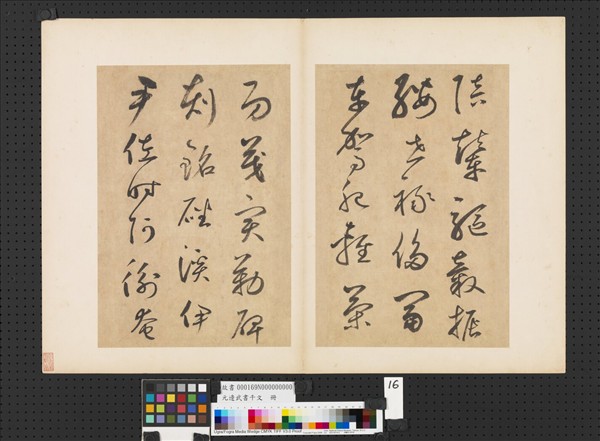 陪輦驅轂振
纓世祿侈富
車駕肥輕策
功茂實勒碑
刻銘磻溪伊
尹佐時阿衡奄
故書 000169N000000000
元邊武書千文 冊
16